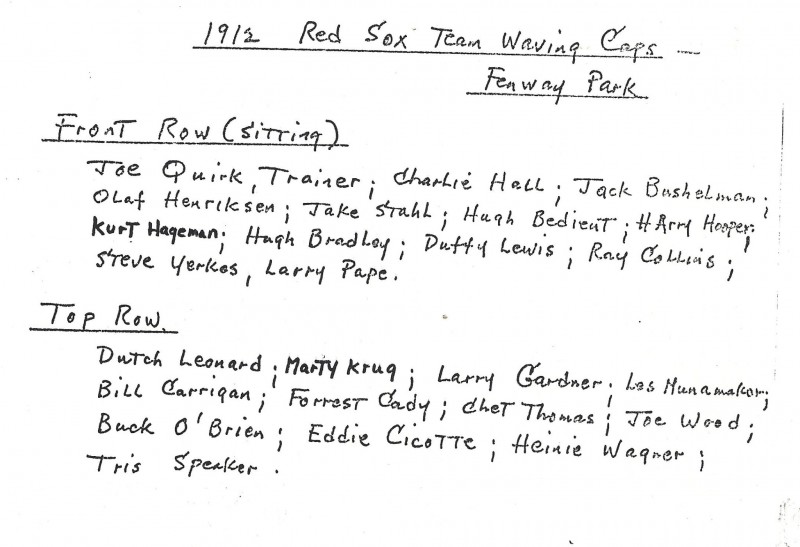 1912 Red Sox Team Waving Caps —
Fenway Park
Front Row (sitting)
Joe Quirk, Trainer; Charlie Hall; Jack Bushelman;
Olaf Henriksen; Jake Stahl; Hugh Bedient; Harry Hooper;
Kurt Hageman; Hugh Bradley; Duffy Lewis; Ray Collins;
Steve Yerkes, Larry Pape.
Top Row.
Dutch Leonard; Marty Krug; Larry Gardner; Les Nunamaker;
Bill Carrigan; Forrest Cady; Chet Thomas; Joe Wood;
Buck O'Brien; Eddie Cicotte; Heinie Wagner;
Tris Speaker.